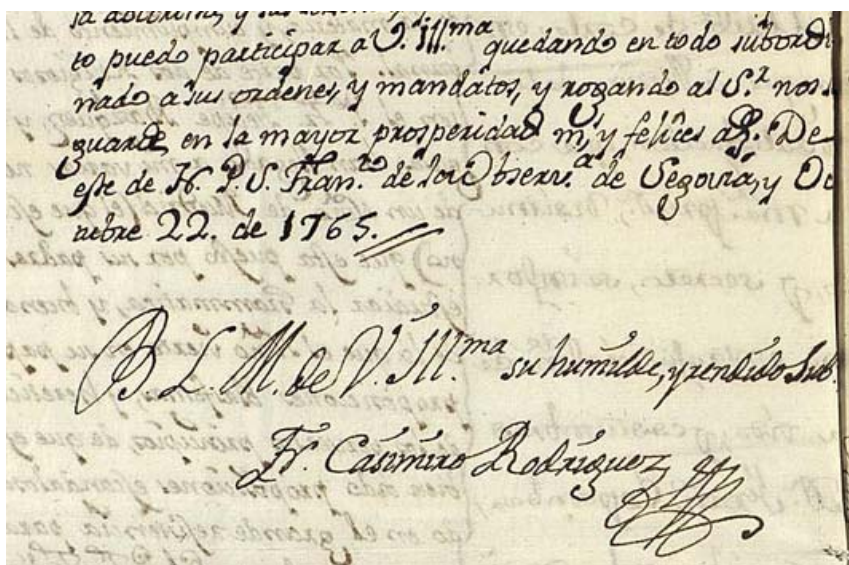 to puedo participar a V. Ill.ma quedando en todo subordi
nado a sus ordenes, y mandatos, y rogando al S.r nos
guarde en la mayor prosperidad m.s y felices a.s. De
este de N. P. S. Fran.co de la Observ.a de Segovia, y
nubre 22. de 1765.
B. L. M. de V. Ill.ma su humilde, y rendido Sub.
Fr. Casimiro Rodriguez